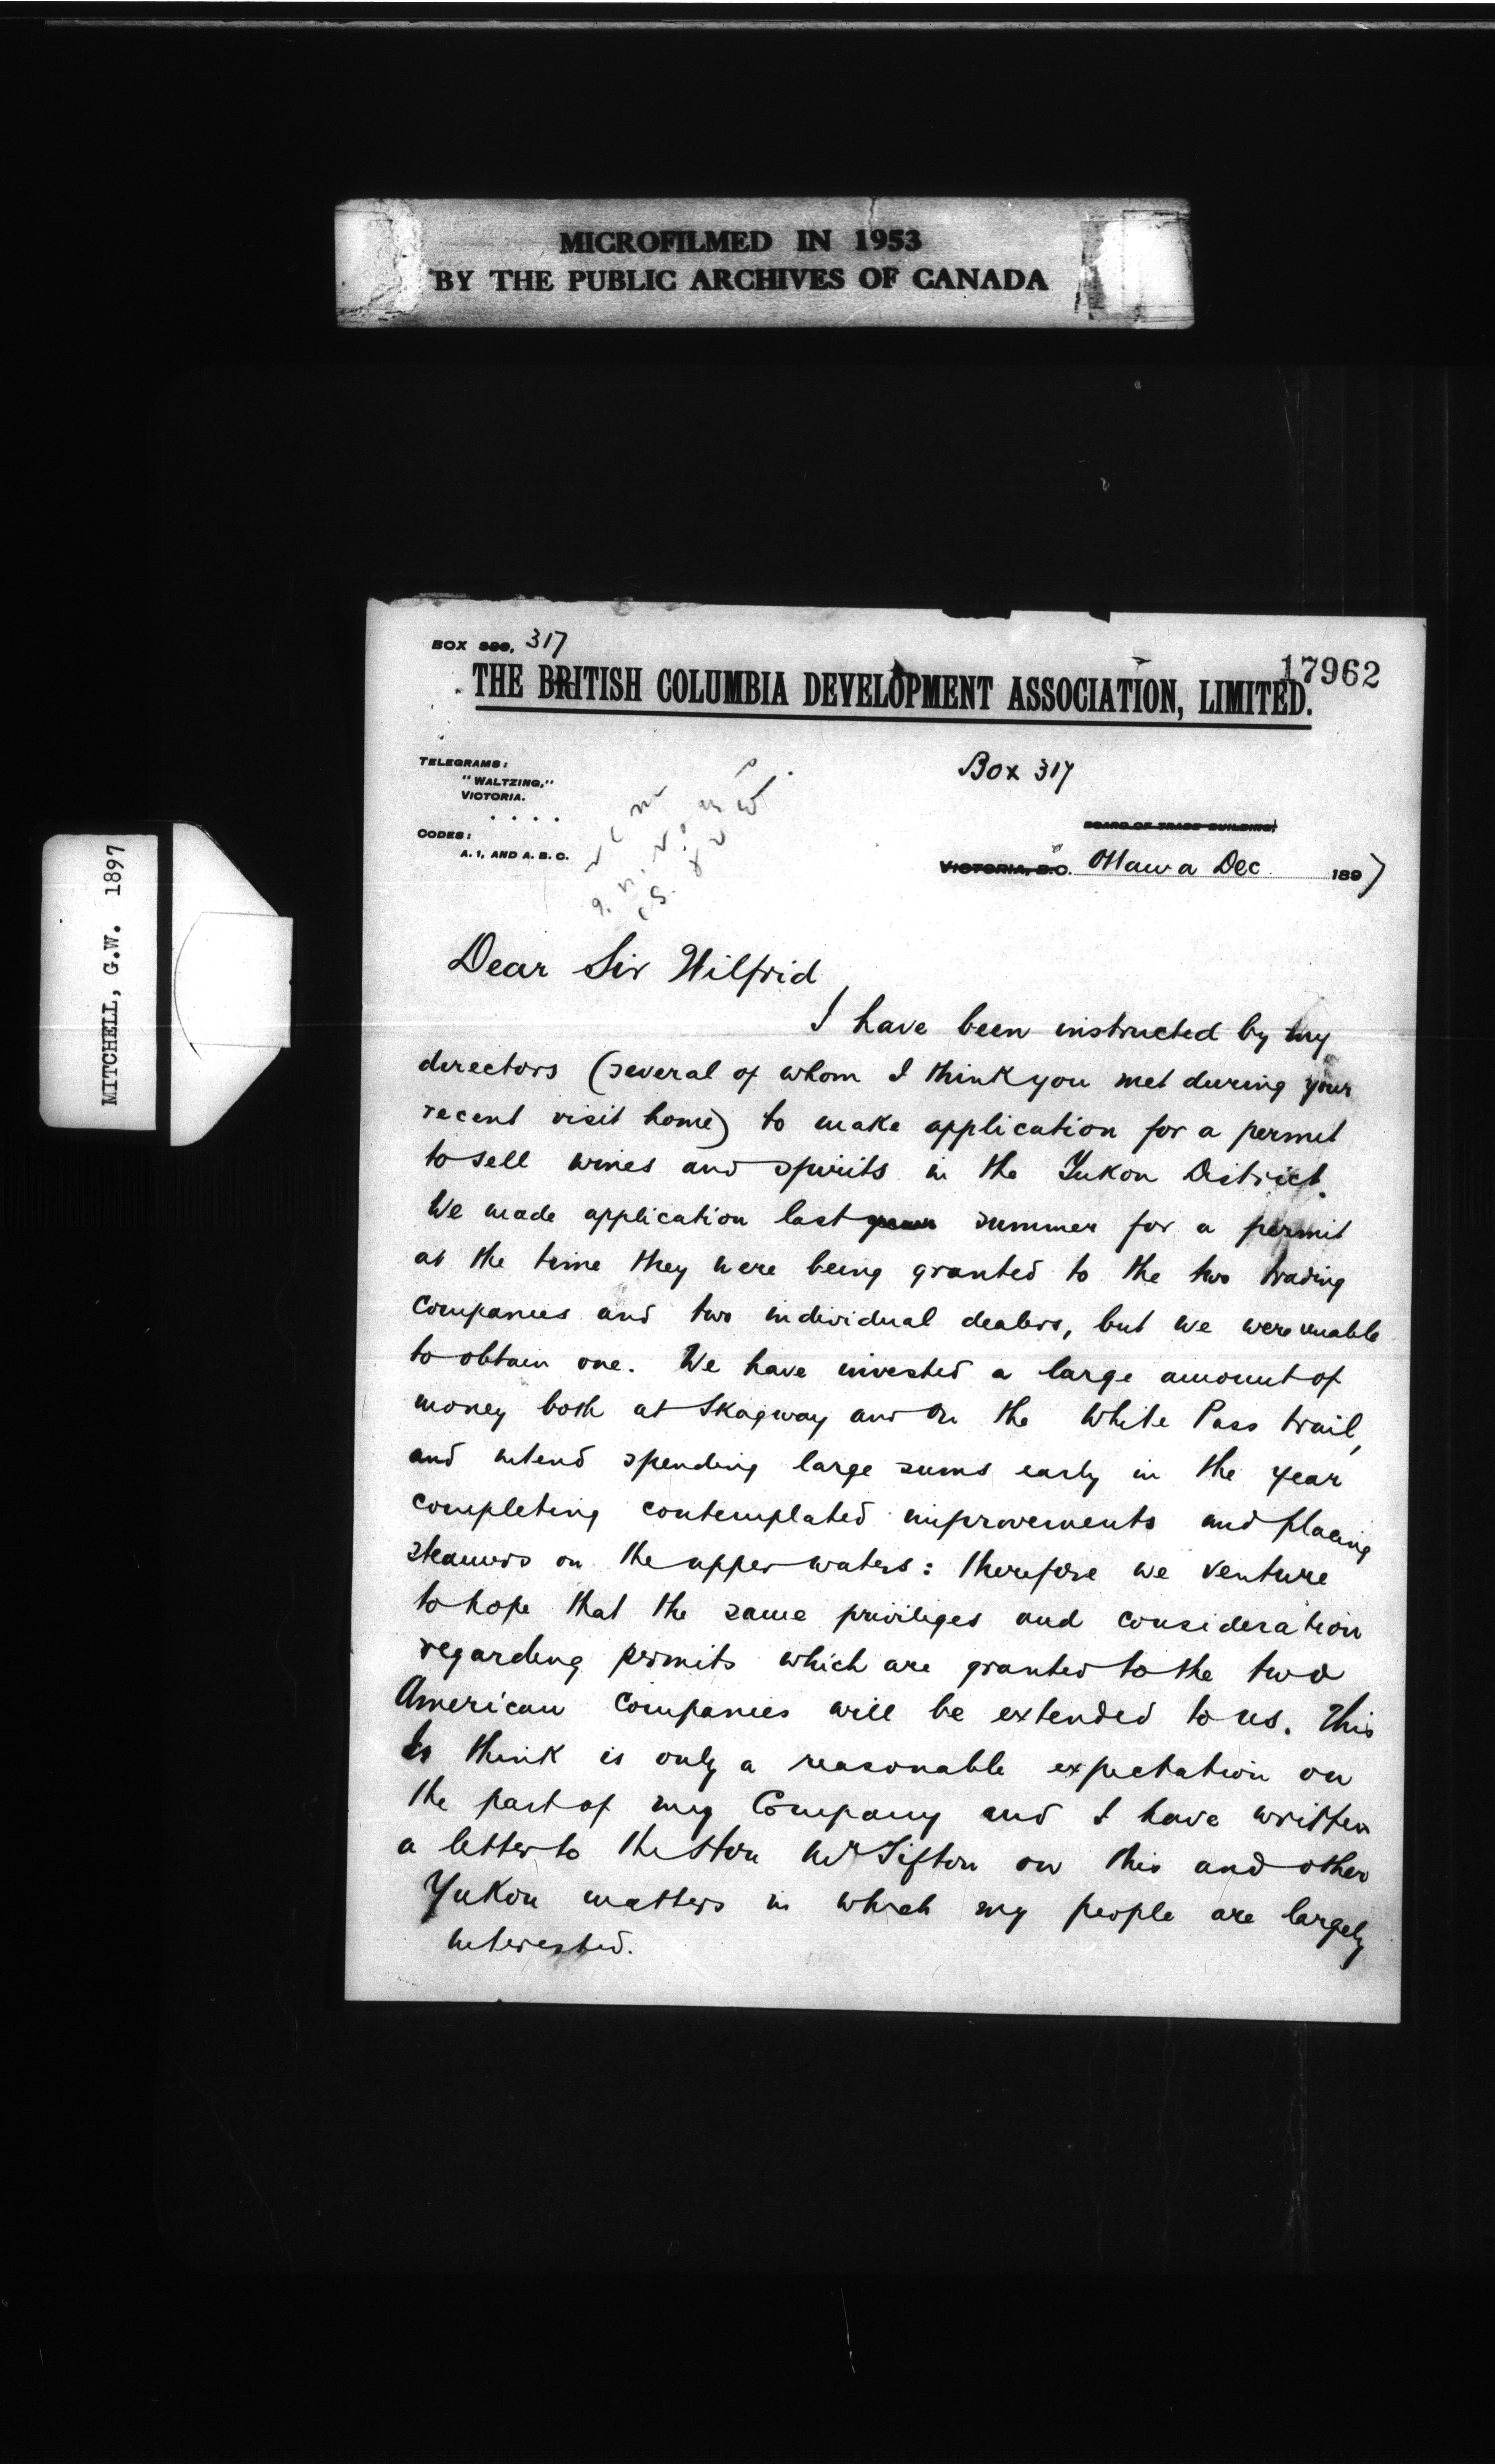 MICROFILMED IN 1953
BY THE PUBLIC ARCHIVES OF CANADA
MITCHELL, G.W. 1897
BOX 317
17962
THE BRITISH COLUMBIA DEVELOPMENT ASSOCIATION, LIMITED.
TELEGRAMS:
"WALTZING,"
VICTORIA.
CODES:
A. 1, AND A. B. C.
Box 317
BOARD OF TRADE BUILDING,
VICTORIA, B.C. Ottawa Dec 1897
Dear Sir Wilfrid,
I have been instructed by my
directors (several of whom I think you met during your
recent visit home) to make application for a permit
to sell wines and spirits in the Yukon District.
We made application last summer for a permit
at the time they were being granted to the two trading
companies and two individual dealers, but we were unable
to obtain one. We have invested a large amount of
money both at Skagway and on the White Pass trail,
and intend spending large sums early in the year
completing contemplated improvements and placing
steamers on the upper waters: therefore we venture
to hope that the same priviliges and consideration
regarding permits which are granted to the two
American companies will be extended to us. This
I think is only a reasonable expectation on
the part of my Company and I have written
a letter to the Hon Mr Sifton on this and other
Yukon matters in which my people are largely
interested.